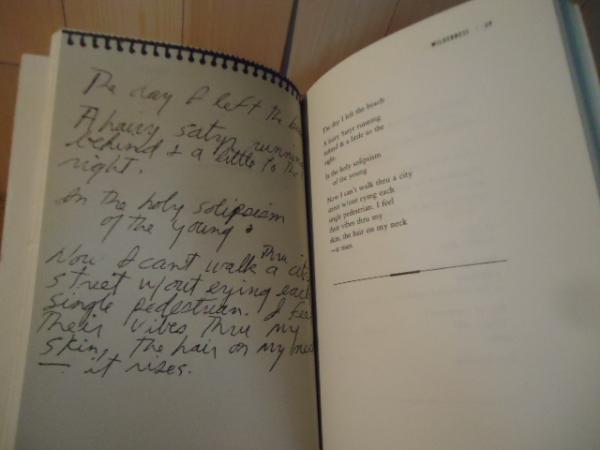 The day I left the
A hairy satyr running
behind & a little to the
right.
In the holy solipsism
of the young.
Now I can't walk thru a city
street w/out eying each
single pedestrian. I feel
Their vibes thru my
skin, the hair on my neck
— it rises.
WILDERNESS
The day I left the beach
A hairy Satyr running
behind & a little to the
right.
In the holy solipsism
of the young
Now I can't walk thru a city
street w/out eying each
single pedestrian. I feel
their vibes thru my
skin, the hair on my neck
—it rises.